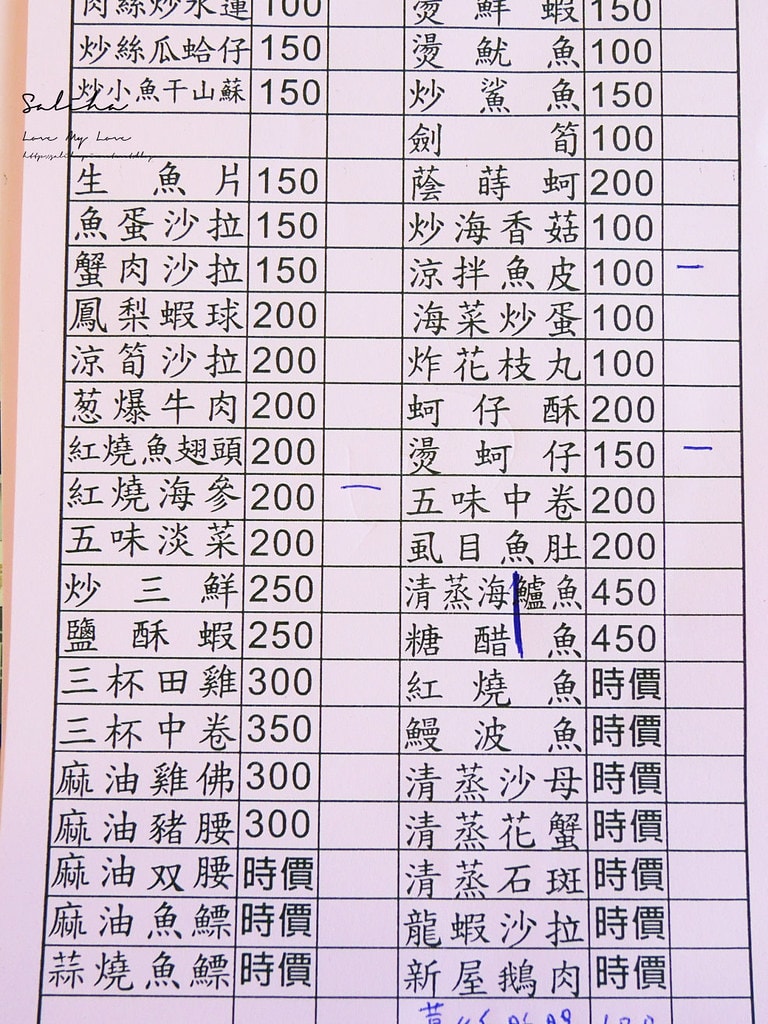 肉絲炒水蓮 100 燙鮮蝦 150
炒絲瓜蛤仔 150 燙魷魚 100
炒小魚干山蘇 150 炒鯊魚 150
Saliha
Love My Love
劍筍 100
生魚片 150 蔭蒔蚵 200
魚蛋沙拉 150 炒海香菇 100
蟹肉沙拉 150 涼拌魚皮 100 一
鳳梨蝦球 200 海菜炒蛋 100
涼筍沙拉 200 炸花枝丸 100
葱爆牛肉 200 蚵仔酥 200
紅燒魚翅頭 200 燙蚵仔 150 一
紅燒海參 200 一 五味中卷 200
五味淡菜 200 虱目魚肚 200
炒三鮮 250 清蒸海鱸魚 450
鹽酥蝦 250 糖醋魚 450
三杯田雞 300 紅燒魚 時價
三杯中卷 350 鰻波魚 時價
麻油雞佛 300 清蒸沙母 時價
麻油豬腰 300 清蒸花蟹 時價
麻油双腰 時價 清蒸石斑 時價
麻油魚鰾 時價 龍蝦沙拉 時價
蒜燒魚鰾 時價 新屋鵝肉 時價